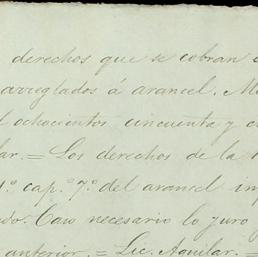 derechos que se cobran
arreglados á arancel.
ochocientos cincuenta y
lar. = Los derechos de la
1.º cap.º 7.º del arancel im
do. Caso necesario lo juro
anterior. = Lic. Aguilar. =